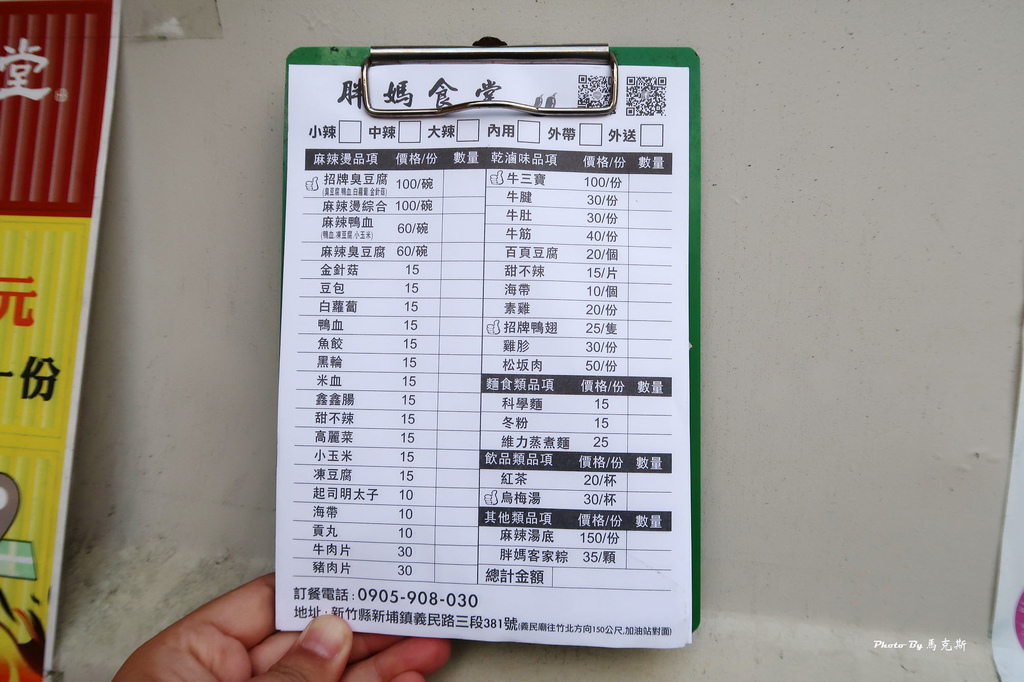 堂
元
一份
胖媽食堂
小辣 中辣 大辣 內用 外帶 外送
麻辣燙品項 價格/份 數量
招牌臭豆腐 100/碗
(臭豆腐.鴨血.白蘿蔔.金針菇)
麻辣燙綜合 100/碗
麻辣鴨血 60/碗
(鴨血.凍豆腐.小玉米)
麻辣臭豆腐 60/碗
金針菇 15
豆包 15
白蘿蔔 15
鴨血 15
魚餃 15
黑輪 15
米血 15
鑫鑫腸 15
甜不辣 15
高麗菜 15
小玉米 15
凍豆腐 15
起司明太子 10
海帶 10
貢丸 10
牛肉片 30
豬肉片 30
乾滷味品項 價格/份 數量
牛三寶 100/份
牛腱 30/份
牛肚 30/份
牛筋 40/份
百頁豆腐 20/個
甜不辣 15/片
海帶 10/個
素雞 20/份
招牌鴨翅 25/隻
雞胗 30/份
松坂肉 50/份
麵食類品項 價格/份 數量
科學麵 15
冬粉 15
維力蒸煮麵 25
飲品類品項 價格/份 數量
紅茶 20/杯
烏梅湯 30/杯
其他類品項 價格/份 數量
麻辣湯底 150/份
胖媽客家粽 35/顆
總計金額
訂餐電話：0905-908-030
地址：新竹縣新埔鎮義民路三段381號(義民廟往竹北方向150公尺,加油站對面)
Photo By 馬克斯